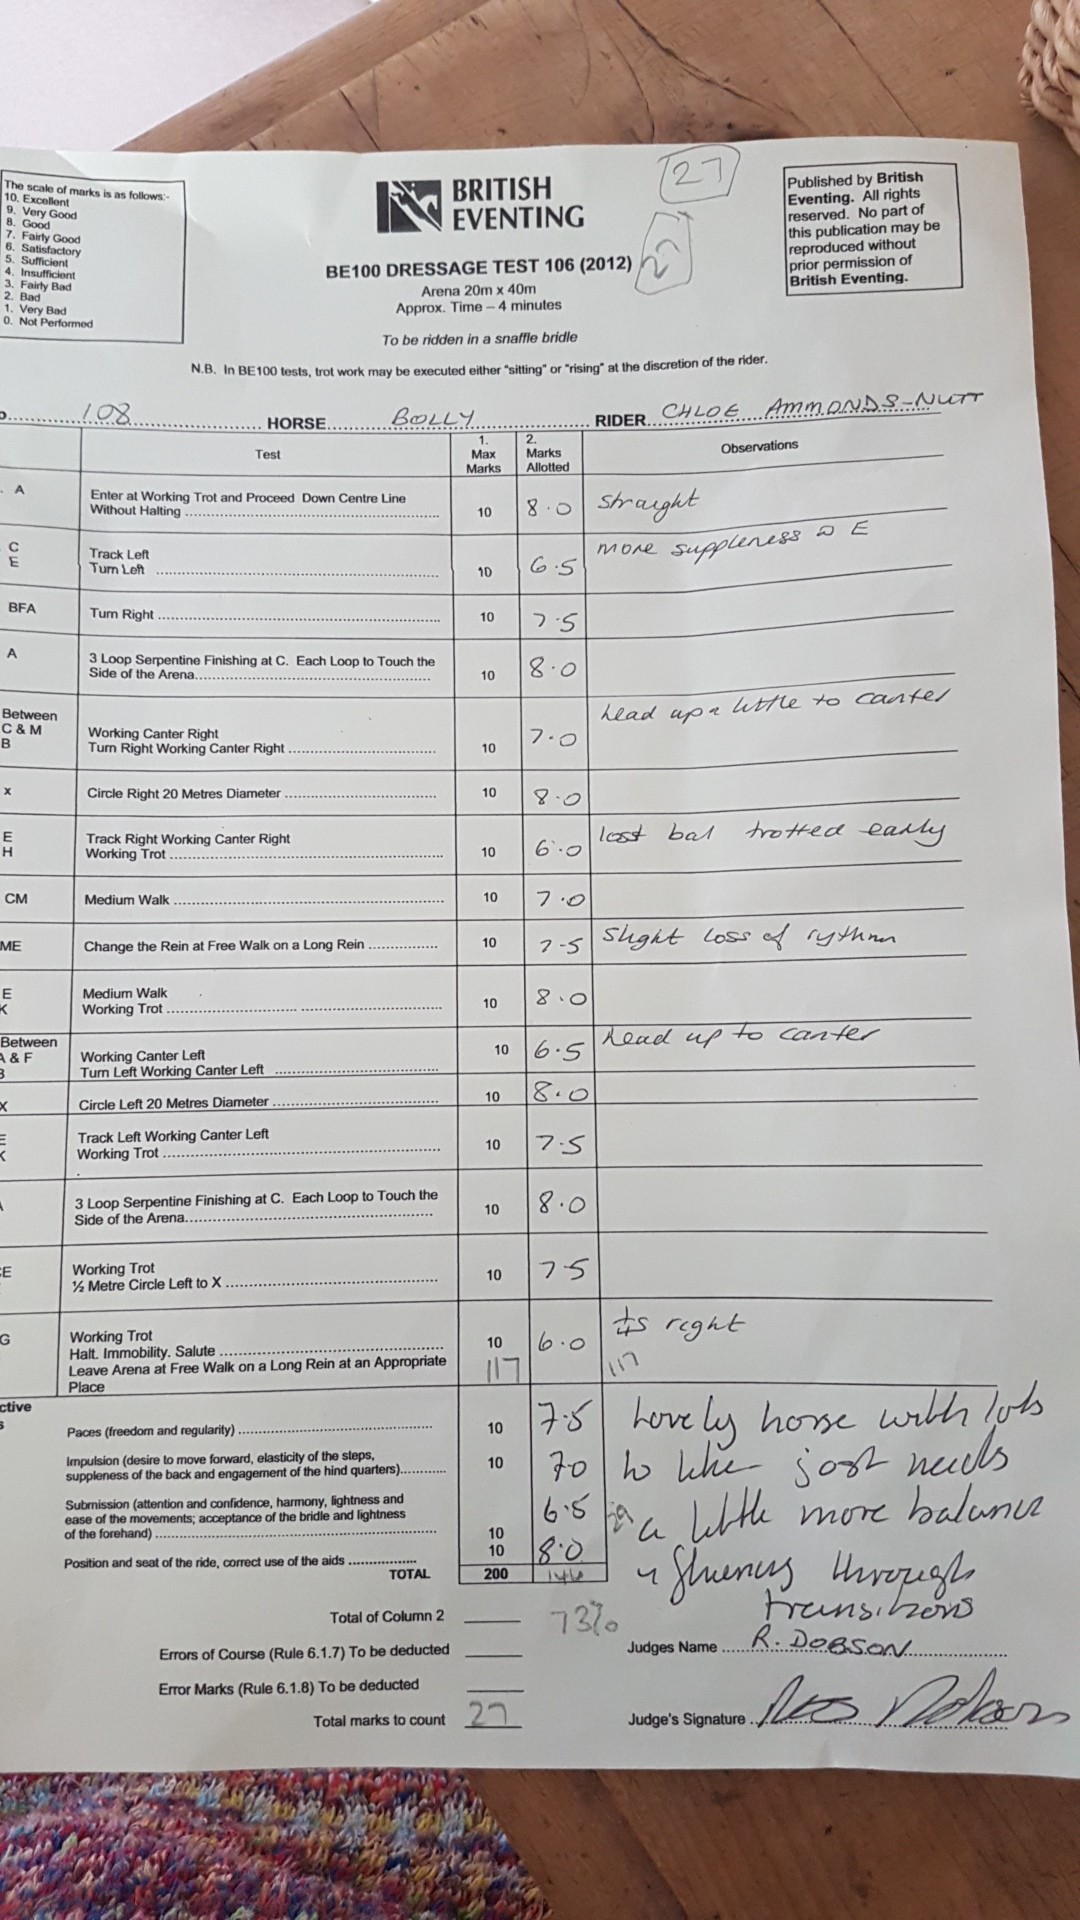 The scale of marks is as follows:-
10. Excellent
9. Very Good
8. Good
7. Fairly Good
6. Satisfactory
5. Sufficient
4. Insufficient
3. Fairly Bad
2. Bad
1. Very Bad
0. Not Performed
BRITISH
EVENTING
27
BE100 DRESSAGE TEST 106 (2012)
Arena 20m x 40m
Approx. Time – 4 minutes
To be ridden in a snaffle bridle
N.B. In BE100 tests, trot work may be executed either "sitting" or "rising" at the discretion of the rider.
Published by British
Eventing. All rights
reserved. No part of
this publication may be
reproduced without
prior permission of
British Eventing.
108 HORSE BOLLY RIDER CHLOE AMMONDS-NUTT
Test 1. Max Marks 2. Marks Allotted Observations
A Enter at Working Trot and Proceed Down Centre Line
Without Halting 10 8.0 straight
C Track Left
E Turn Left 10 6.5 more suppleness @ E
BFA Turn Right 10 7.5
A 3 Loop Serpentine Finishing at C. Each Loop to Touch the
Side of the Arena 10 8.0
Between
C & M Working Canter Right
B Turn Right Working Canter Right 10 7.0 head up a little to canter
x Circle Right 20 Metres Diameter 10 8.0
E Track Right Working Canter Right
H Working Trot 10 6.0 lost bal trotted early
CM Medium Walk 10 7.0
ME Change the Rein at Free Walk on a Long Rein 10 7.5 slight loss of rythmn
E Medium Walk
K Working Trot 10 8.0
Between
A & F Working Canter Left
B Turn Left Working Canter Left 10 6.5 head up to canter
X Circle Left 20 Metres Diameter 10 8.0
E Track Left Working Canter Left
K Working Trot 10 7.5
3 Loop Serpentine Finishing at C. Each Loop to Touch the
Side of the Arena 10 8.0
CE Working Trot
½ Metre Circle Left to X 10 7.5
G Working Trot
Halt. Immobility. Salute 10 6.0 right
Leave Arena at Free Walk on a Long Rein at an Appropriate
Place 117 117
ctive
s
Paces (freedom and regularity) 10 7.5
Impulsion (desire to move forward, elasticity of the steps,
suppleness of the back and engagement of the hind quarters) 10 70
Submission (attention and confidence, harmony, lightness and
ease of the movements; acceptance of the bridle and lightness
of the forehand) 10 6.5
Position and seat of the ride, correct use of the aids 10 8.0
TOTAL 200 146
Lovely horse with lots
to like just needs
a little more balance
fluency through
transitions
Total of Column 2 73%
Errors of Course (Rule 6.1.7) To be deducted
Error Marks (Rule 6.1.8) To be deducted
Total marks to count 27
Judges Name R. DOBSON
Judge's Signature